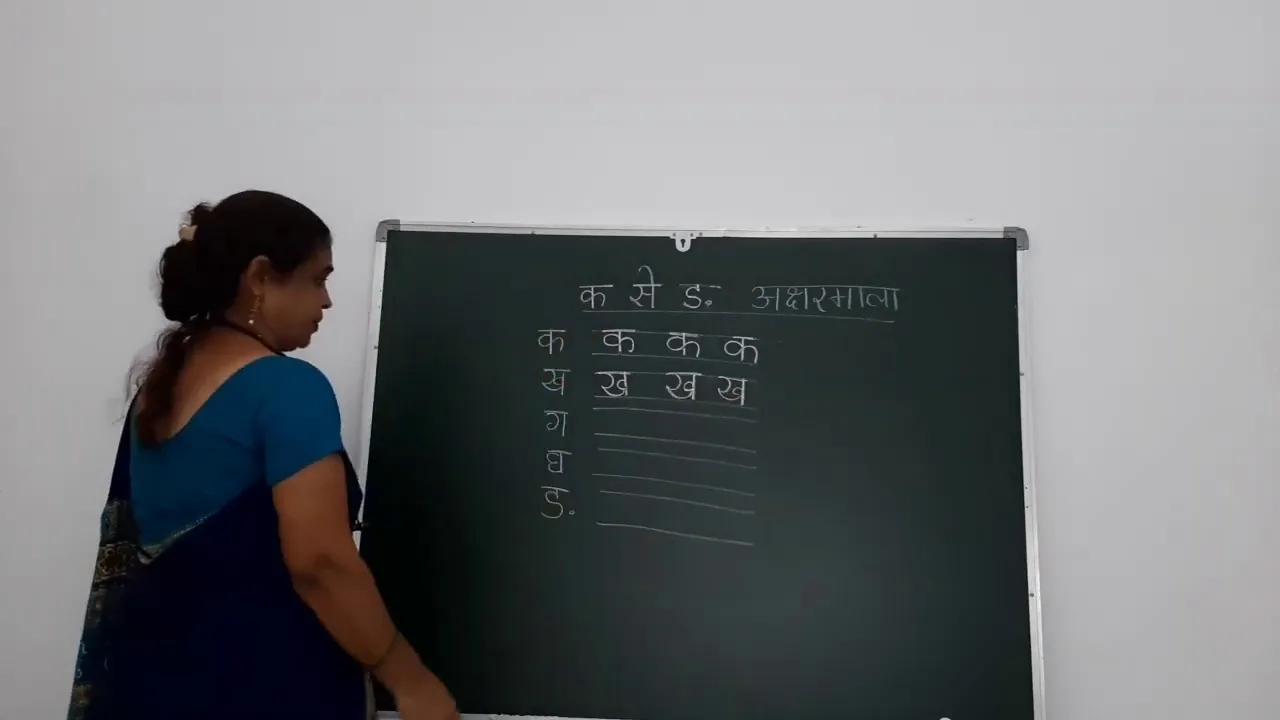 क से ङ अक्षरमाला
क क क क
ख ख ख ख
ग
घ
ङ